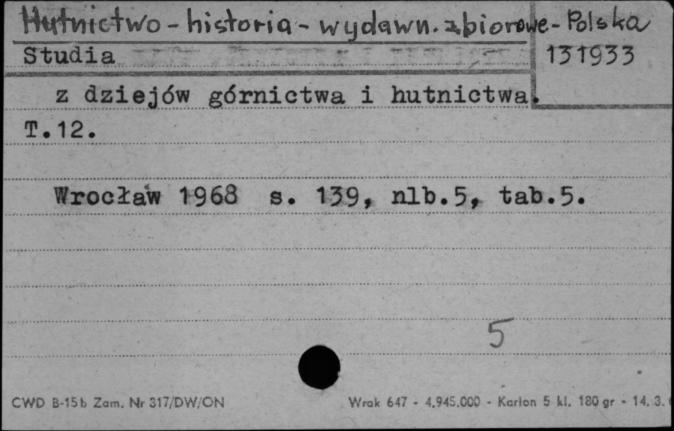 Hutnictwo - historia - wydawn. zbiorowe - Polska
Studia 131933
z dziejów górnictwa i hutnictwa.
T.12.
Wrocław 1968 s. 139, nlb.5, tab.5.
5
CWD B-15b Zam. Nr 317/DW/ON Wrak 647 - 4.945.000 - Karton 5 kl. 180 gr - 14.3.